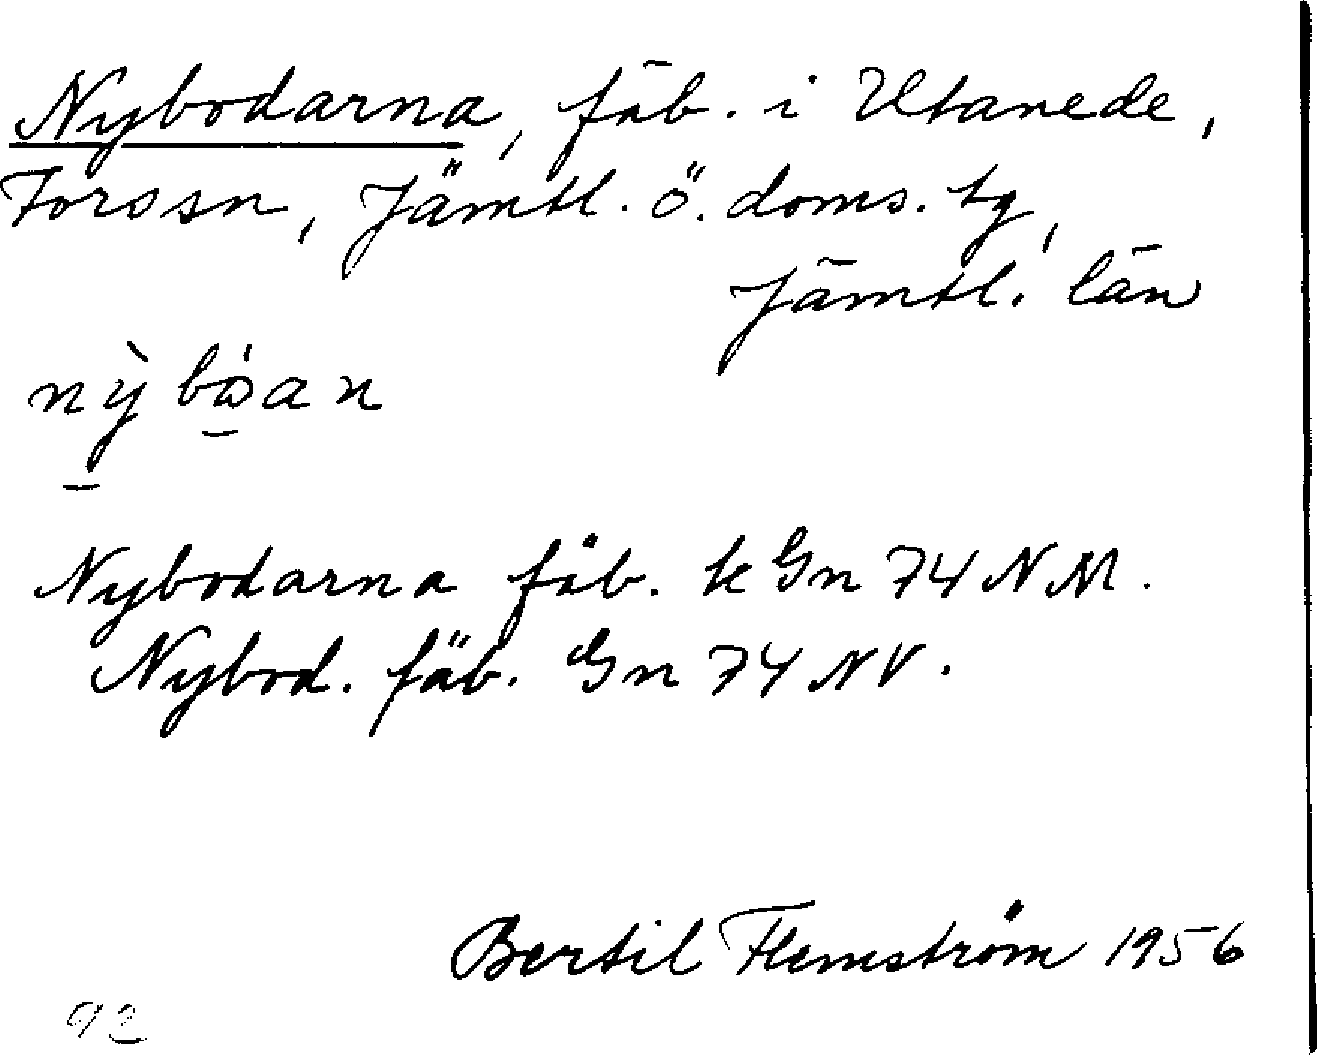 Nybodarna, fäb. i Utanede,
Forssn, Jämtl. ö. doms. tg,
Jämtl. län
Nybodarna fäb. k Gn 74 NM.
Nybod. fäb. Gn 74 NV.
Bertil Flemström 1956
92